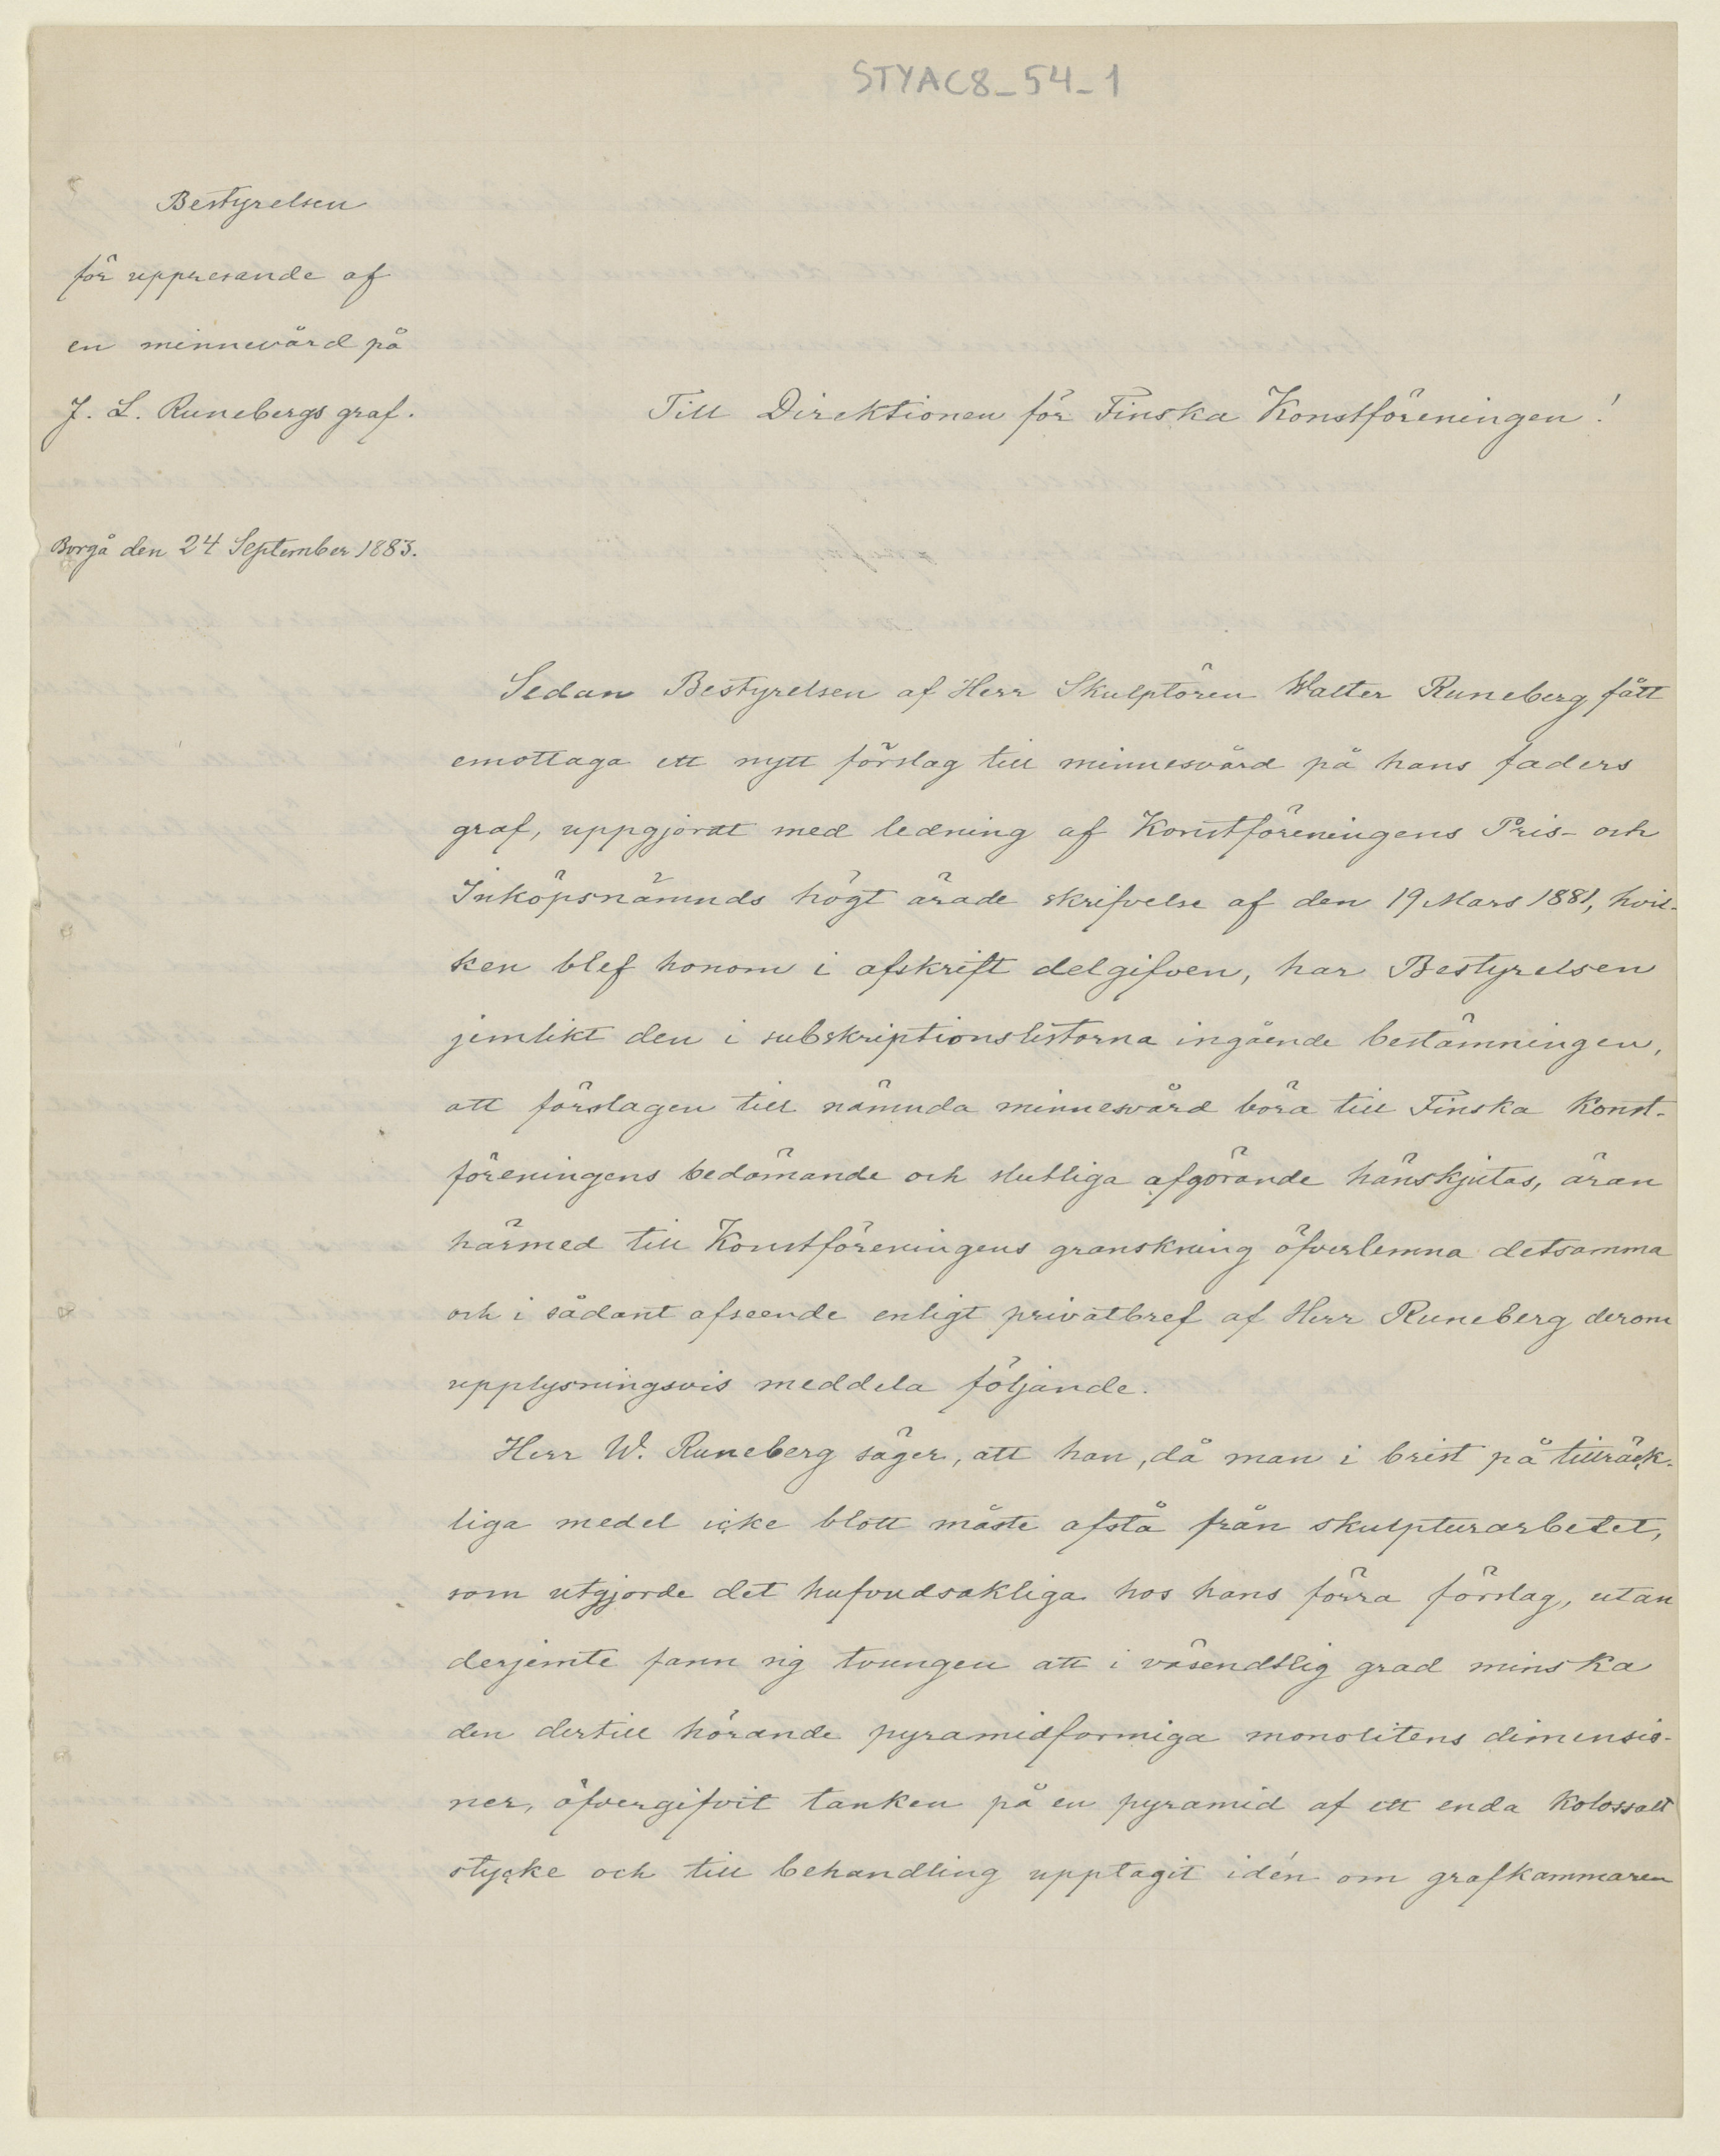 STYAC8_54_1
Bestyrelsen
för uppresande af
en minnevård på
J. L. Runebergs graf.
Till Direktionen för Finska Konstföreningen!
Borgå den 24 September 1883.
Sedan Bestyrelsen af Herr Skulptören Walter Runeberg fått
emottaga ett nytt förslag till minnesvård på hans faders
graf, uppgjordt med ledning af Konstföreningens Pris- och
Inköpsnämnds högt ärade skrifvelse af den 19 Mars 1881, hvil-
ken blef honom i afskrift delgifven, har Bestyrelsen
jemlikt den i subskriptionslistorna ingående bestämningen,
att förslagen till nämnda minnesvård böra till Finska Konst-
föreningens bedömande och slutliga afgörande hänskjutas, äran
härmed till Konstföreningens granskning öfverlemna detsamma
och i sådant afseende enligt privatbref af Herr Runeberg derom
upplysningsvis meddela följande.
Herr W. Runeberg säger, att han, då man i brist på tillräck-
liga medel icke blott måste afstå från skulpturarbetet,
som utgjorde det hufvudsakliga hos hans förra förslag, utan
derjemte fann sig tvungen att i väsendtlig grad minska
den dertill hörande pyramidformiga monolitens dimensio-
ner, öfvergifvit tanken på en pyramid af ett enda kolossalt
stycke och till behandling upptagit idén om grafkammaren